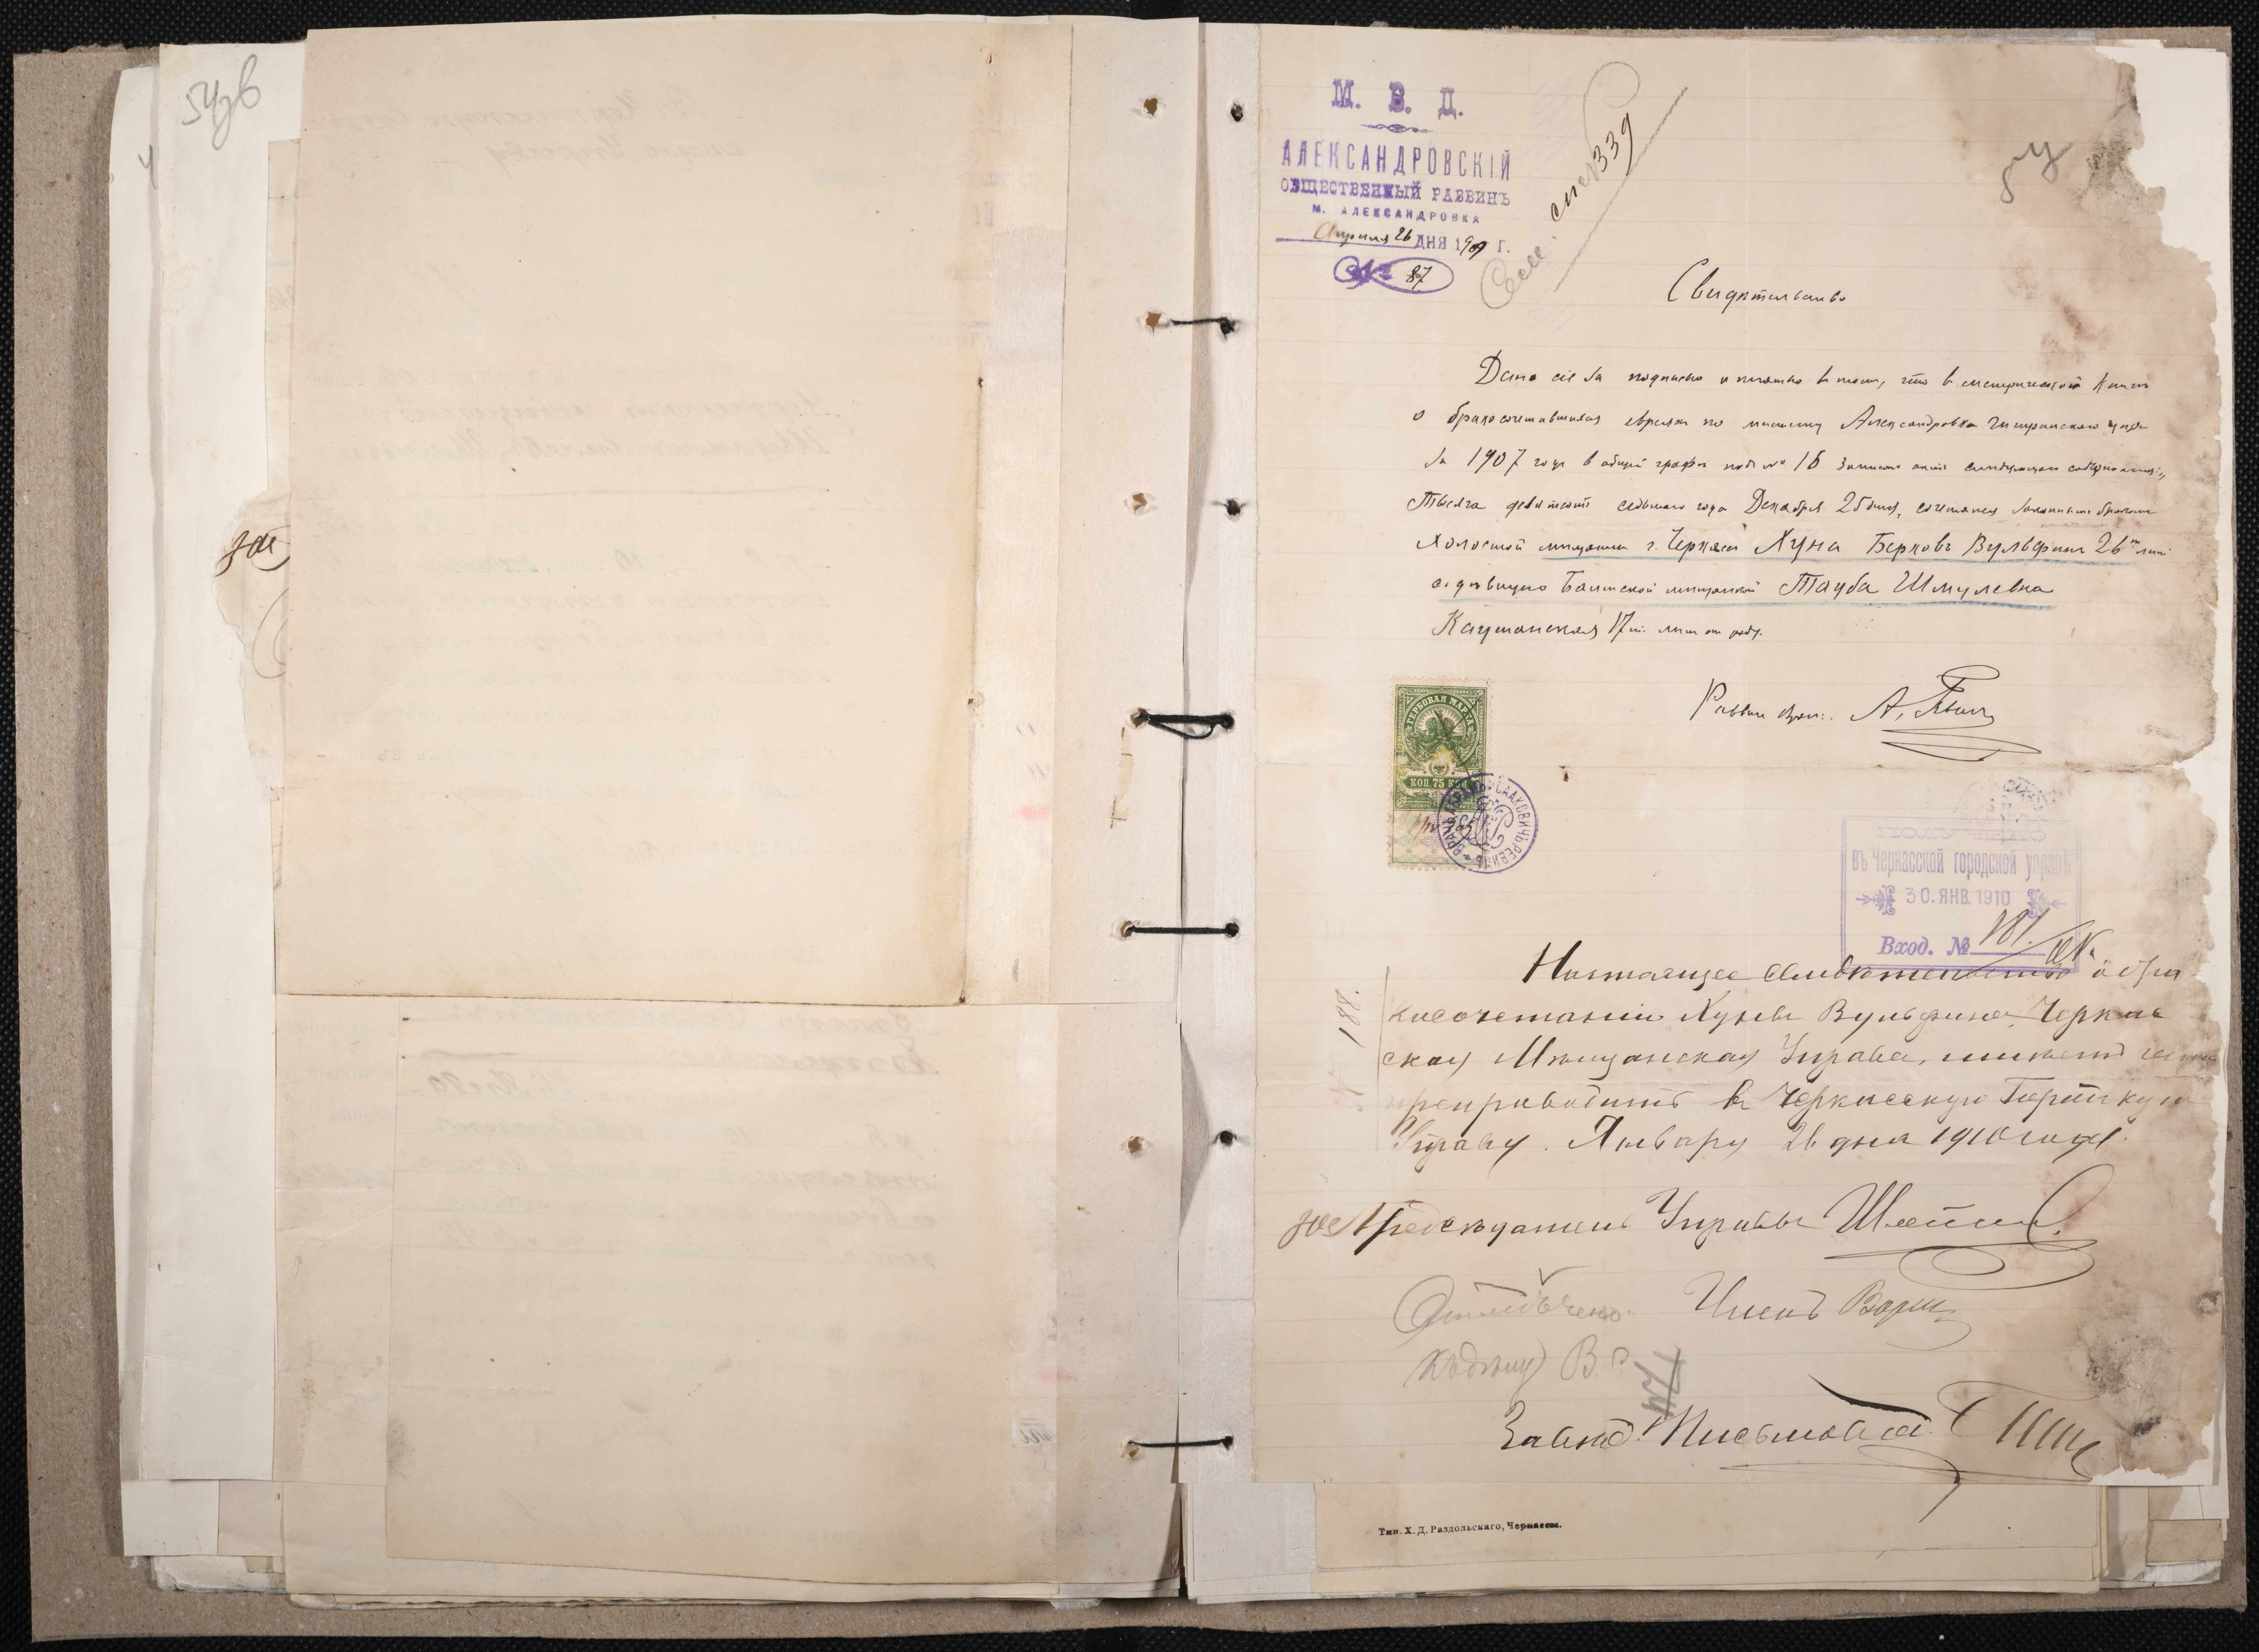 54об
М. В. Д.
АЛЕКСАНДРОВСКІЙ
ОБЩЕСТВЕННЫЙ РАВВИНЪ
М. АЛЕКСАНДРОВКА
Апреля 26 ДНЯ 1909 Г.
№ 87
Сем. сп. № 339
54
Свидѣтельство
Дано сіе за подписью и печатью в том, что в метрической книгѣ
о бракосочетавшихся евреях по мѣстечку Александровка Чигиринскаго уѣзда
за 1907 годъ в общей графѣ подъ № 18 записан актъ слѣдующаго содержанія:
Тысяча девятьсотъ седьмого года Декабря 25 дня, сочетался законным браком
холостой мѣщанин г. Черкасъ Хуна Берковъ Вульфин 26 лѣтъ
с дѣвицею Балтской мѣщанкой Тауба Шмулевна
Каушанская 17 лѣт от роду.
Раввин А.
ГЕРБОВАЯ МАРКА
КОП. 75 КОП.
въ Черкасской городской управѣ
30. ЯНВ. 1910
Вход. № 181.
Настоящее свидѣтельство о бра
косочетаніи Хуны Вульфина, Черкас
ская Мѣщанская Управа, имѣетъ честь
препроводить въ Черкасскую Городскую
Управу. Январу 26 дня 1910 года.
№ 188.
Предсѣдатель Управы
Отмѣчено Членъ
Завѣд. Письмовод.
Тип. Х. Д. Раздольскаго, Черкассы.